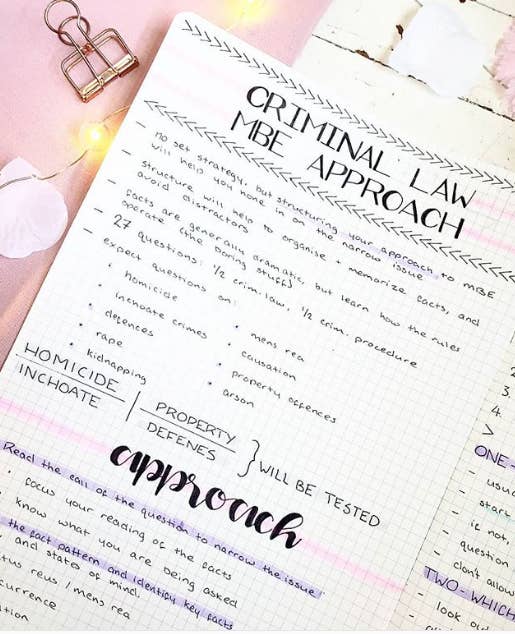 CRIMINAL LAW
MBE APPROACH
- no set strategy, but structuring your approach to MBE
will help you hone in on the narrow issue
- structure will help to organise + memorize facts, and
avoid distractors
- facts are generally dramatic, but learn how the rules
operate (the boring stuff)
- 27 questions: 1/2 crim. law, 1/2 crim. procedure
- expect questions on:
· homicide
· inchoate crimes
· defences
· rape
· kidnapping
· mens rea
· causation
· property offences
· arson
HOMICIDE / PROPERTY
INCHOATE / DEFENES } WILL BE TESTED
approach
Read the call of the question to narrow the issue
· focus your reading of the facts
· know what you are being asked
the fact pattern and identify key facts
and states of mind.
reus / mens rea
2.
3.
4.
>
ONE-
- usua
- start
- if not,
question
- don't allow
TWO-WHICH
- look